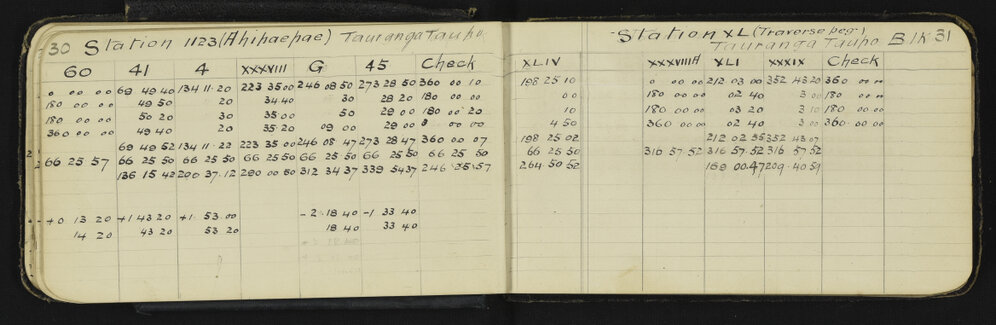 30 Station 1123 (Ahipaepae) Tauranga Taupo
60 41 4 XXXVIII G 45 Check
0 00 00 69 49 40 134 11 20 223 35 00 246 08 50 273 28 50 360 00 10
180 00 00 49 50 20 34 40 30 28 20 180 00 00
180 00 00 50 20 30 35 00 50 29 00 180 00 20
360 00 00 49 40 20 35 20 09 00 29 00 0 00 00
69 49 52 134 11 22 223 35 00 246 08 47 273 28 47 360 00 07
66 25 57 66 25 50 66 25 50 66 25 50 66 25 50 66 25 50 66 25 50
136 15 42 200 37 12 290 00 50 312 34 37 339 54 37 246 25 57
+0 13 20 +1 43 20 +1 53 00 -2 18 40 -1 33 40
14 20 43 20 53 20 18 40 33 40
Station XL (Traverse peg) Tauranga Taupo Blk 31
XLIV XXXVIIIA XLI XXXIX Check
198 25 10 0 00 00 212 03 00 352 43 20 360 00 00
00 180 00 00 02 40 3 00 180 00 00
10 180 00 00 03 20 3 10 180 00 00
4 50 360 00 00 02 40 3 00 360 00 00
198 25 02 212 02 55 352 43 07
66 25 50 316 57 52 316 57 52 316 57 52
264 50 52 169 00 47 309 40 59